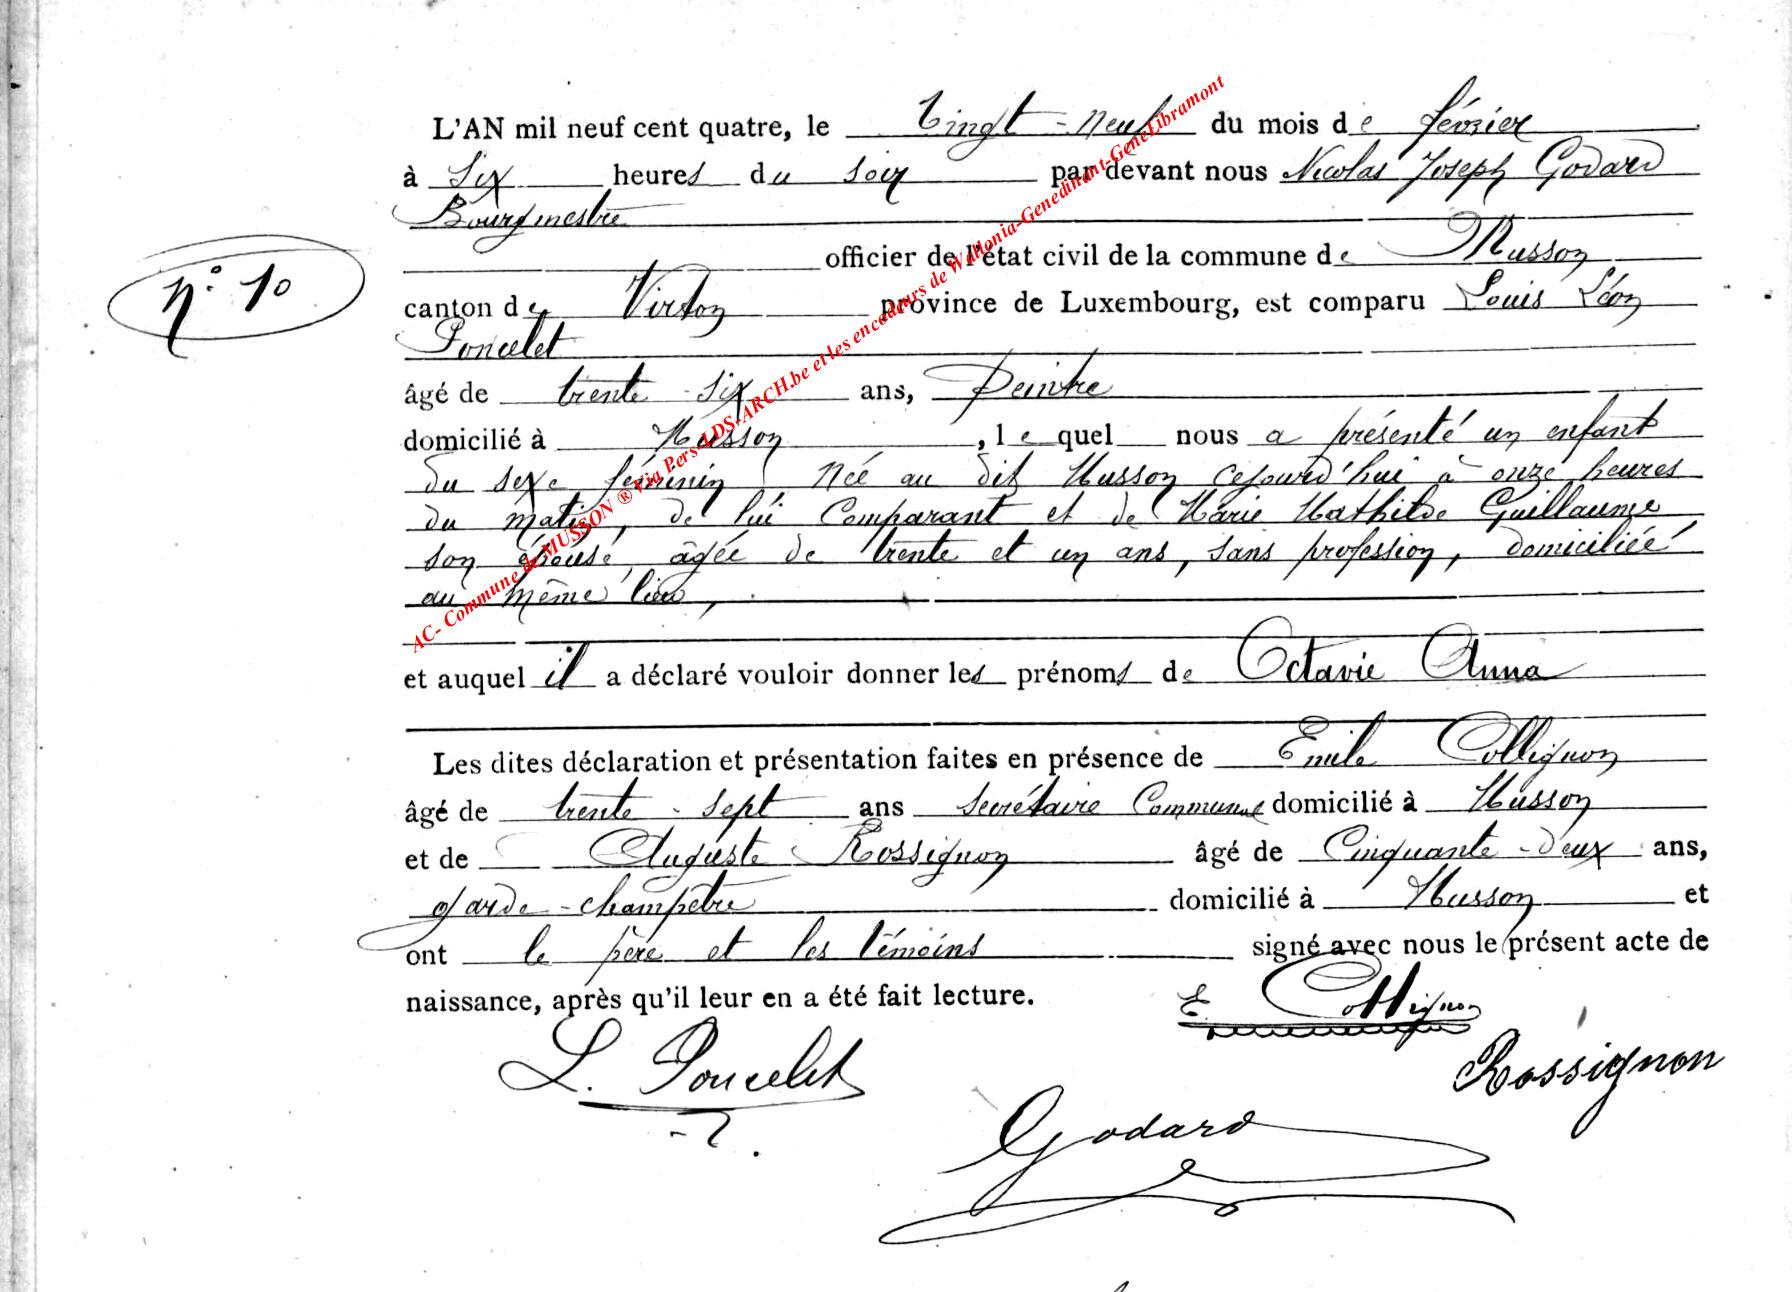 L'AN mil neuf cent quatre, le Vingt-neuf du mois de février
à six heures du soir par devant nous Nicolas Joseph Godard
Bourgmestre
officier de l'état civil de la commune de Musson
N° 10
canton de Virton province de Luxembourg, est comparu Louis Léon
Poncelet
âgé de trente-six ans, Peintre
domicilié à Musson, lequel nous a présenté un enfant
du sexe féminin Née au dit Musson cejourd'hui à onze heures
du matin, de lui Comparant et de Marie Mathilde Guillaume
son épouse, âgée de trente et un ans, sans profession, domiciliée
au même lieu,
et auquel il a déclaré vouloir donner les prénoms de Octavie Anna
Les dites déclaration et présentation faites en présence de Emile Collignon
âgé de trente-sept ans secrétaire Communal domicilié à Musson
et de Auguste Rossignon âgé de Cinquante-deux ans,
garde-champêtre domicilié à Musson et
ont le père et les témoins signé avec nous le présent acte de
naissance, après qu'il leur en a été fait lecture.
E. Collignon
L. Poncelet
Rossignon
Godard
AC- Commune de MUSSON ® Via Pers-LDS-ARCH.be et les encodeurs de Wallonia-Genedinant-GeneLibramont